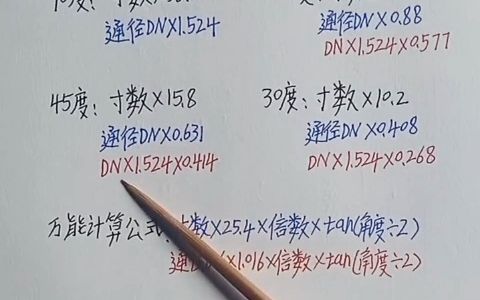 通径DN×1.524
通径DN×0.88
DN×1.524×0.577
45度：寸数×15.8
通径DN×0.631
DN×1.524×0.414
30度：寸数×10.2
通径DN×0.408
DN×1.524×0.268
万能计算公式：寸数×25.4×倍数×tan(角度÷2)
通 ×1.016×倍数×tan(角度÷2)